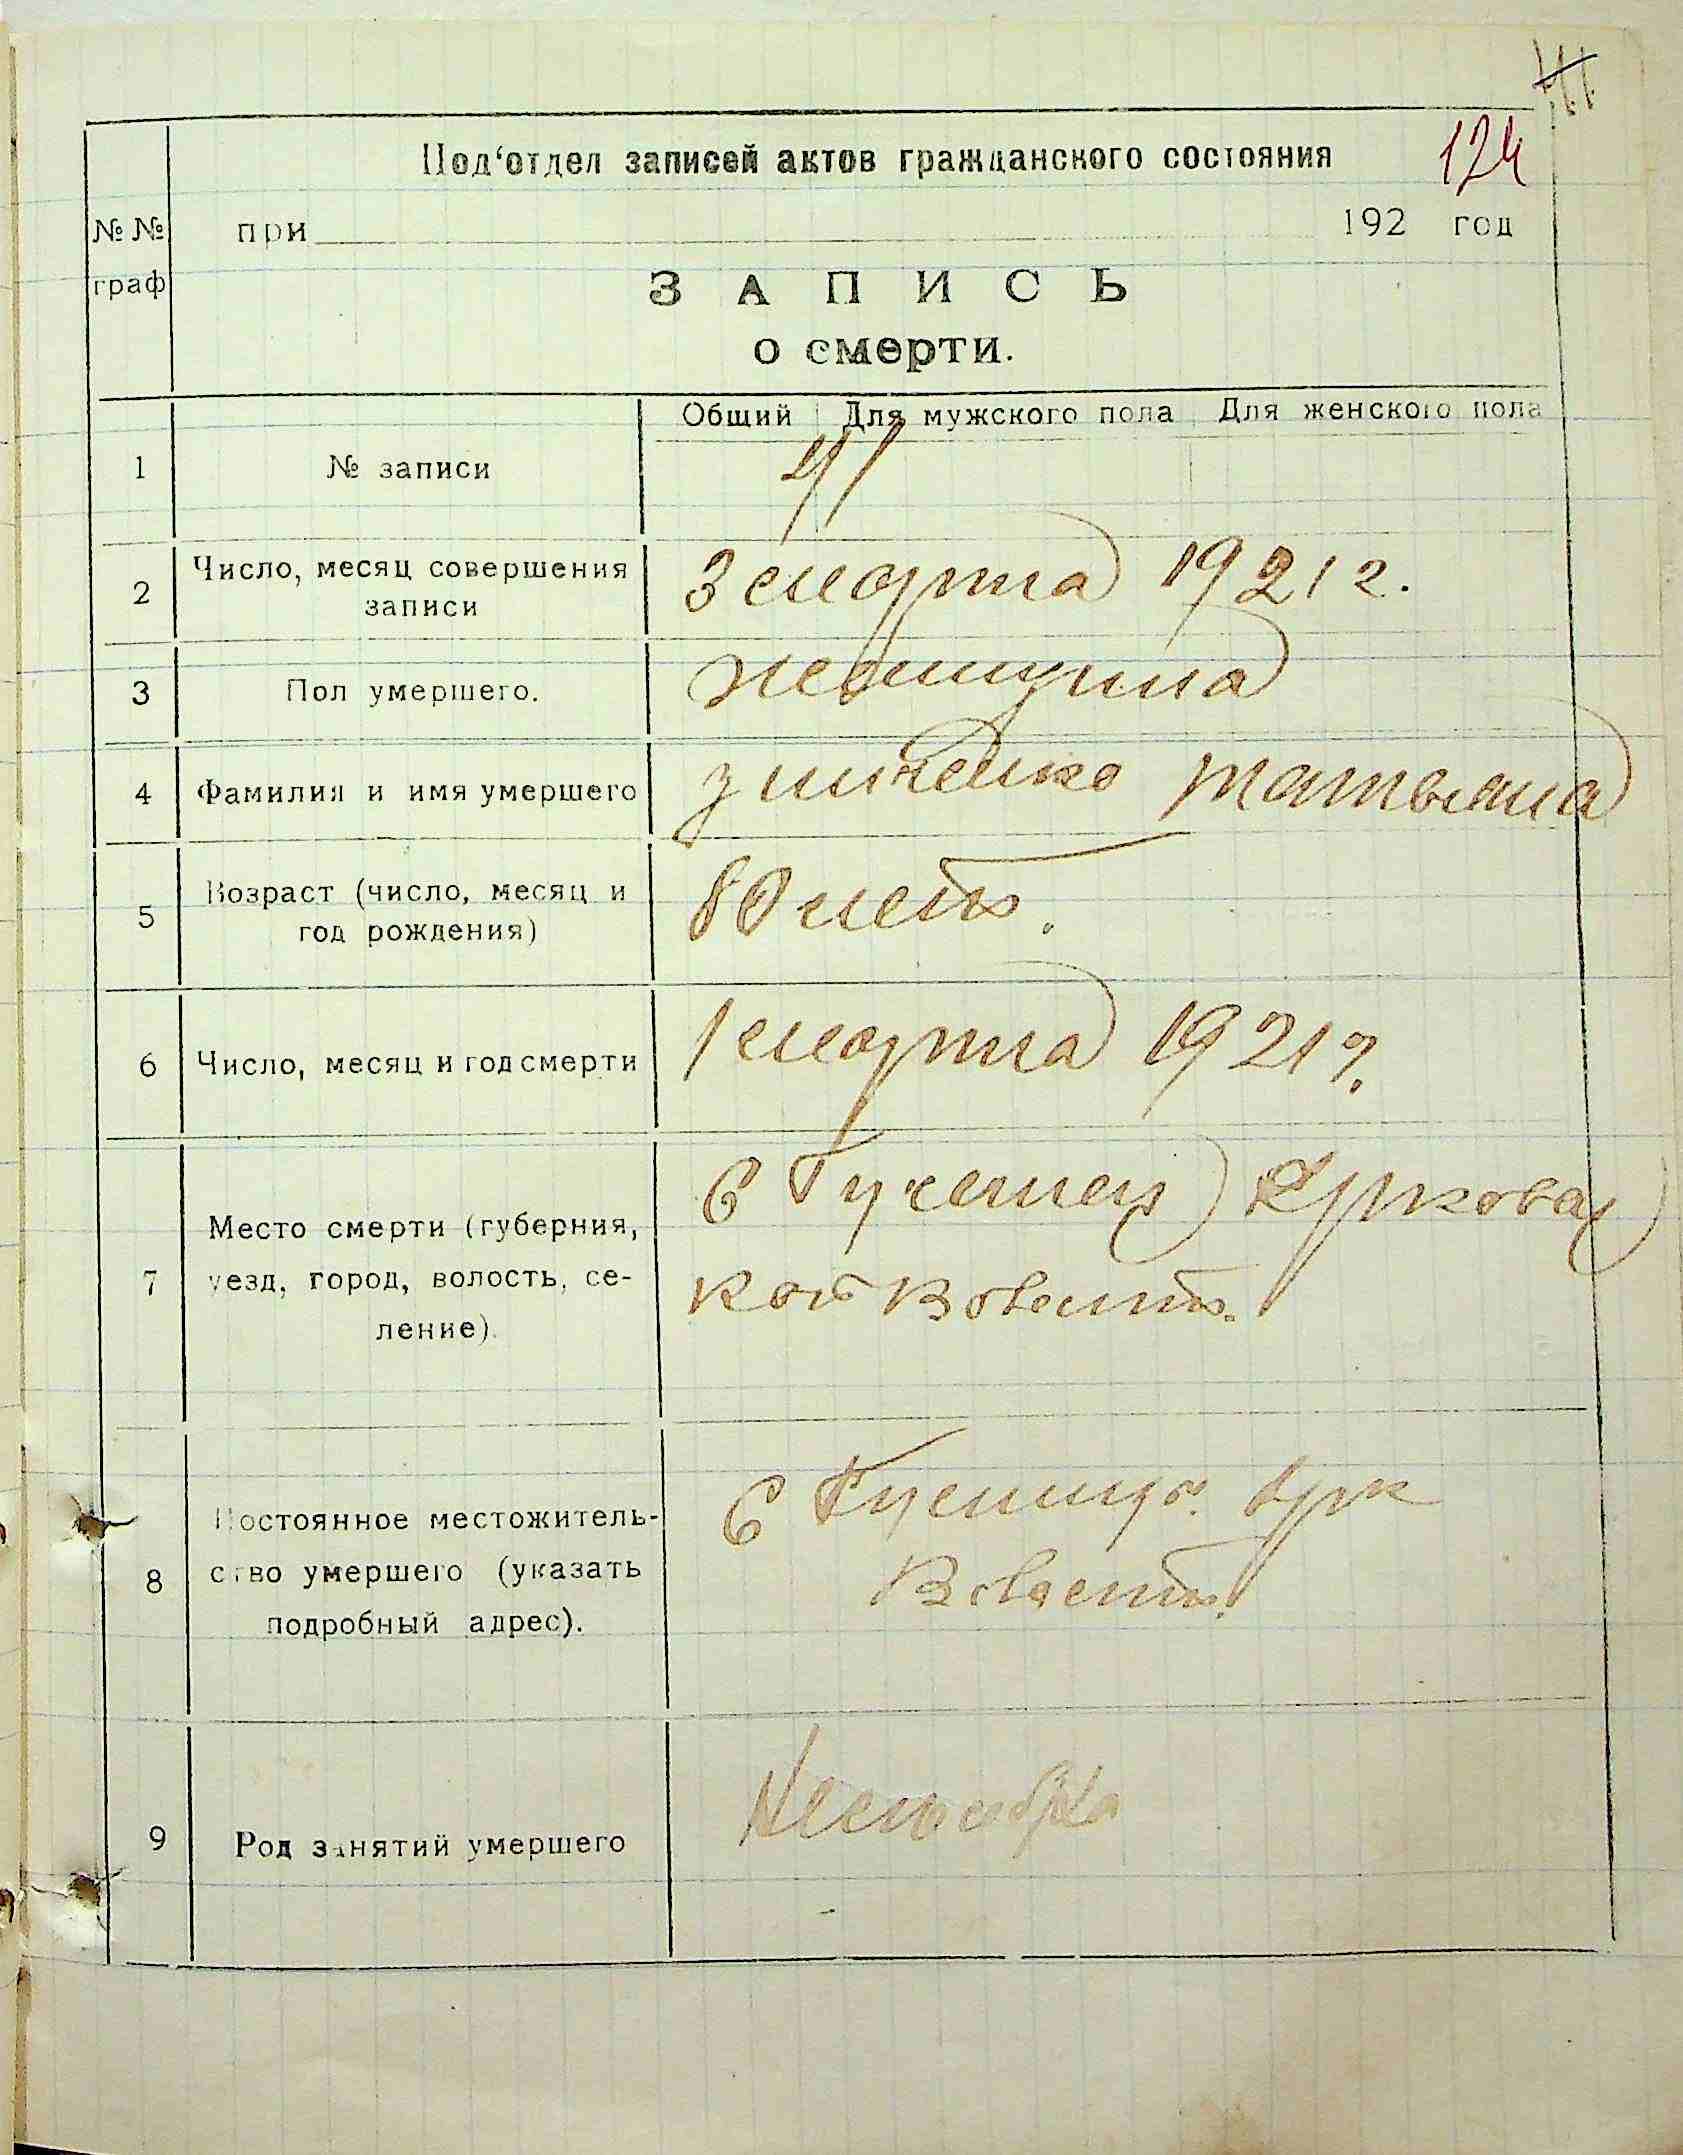 41
124
Под‘отдел записей актов гражданского состояния
№ № граф
при 192 год
ЗАПИСЬ
о смерти.
Общий Для мужского пола Для женского пола
1 № записи 41
2 Число, месяц совершения записи 3 марта 1921 г.
3 Пол умершего. женщина
4 Фамилия и имя умершего Зинченко Татьяна
5 Возраст (число, месяц и год рождения) 80 летъ.
6 Число, месяц и год смерти 1 марта 1921 г.
7 Место смерти (губерния, уезд, город, волость, селение). С
кой Волости.
8 Постоянное местожительство умершего (указать подробный адрес). С
Волости.
9 Род занятий умершего